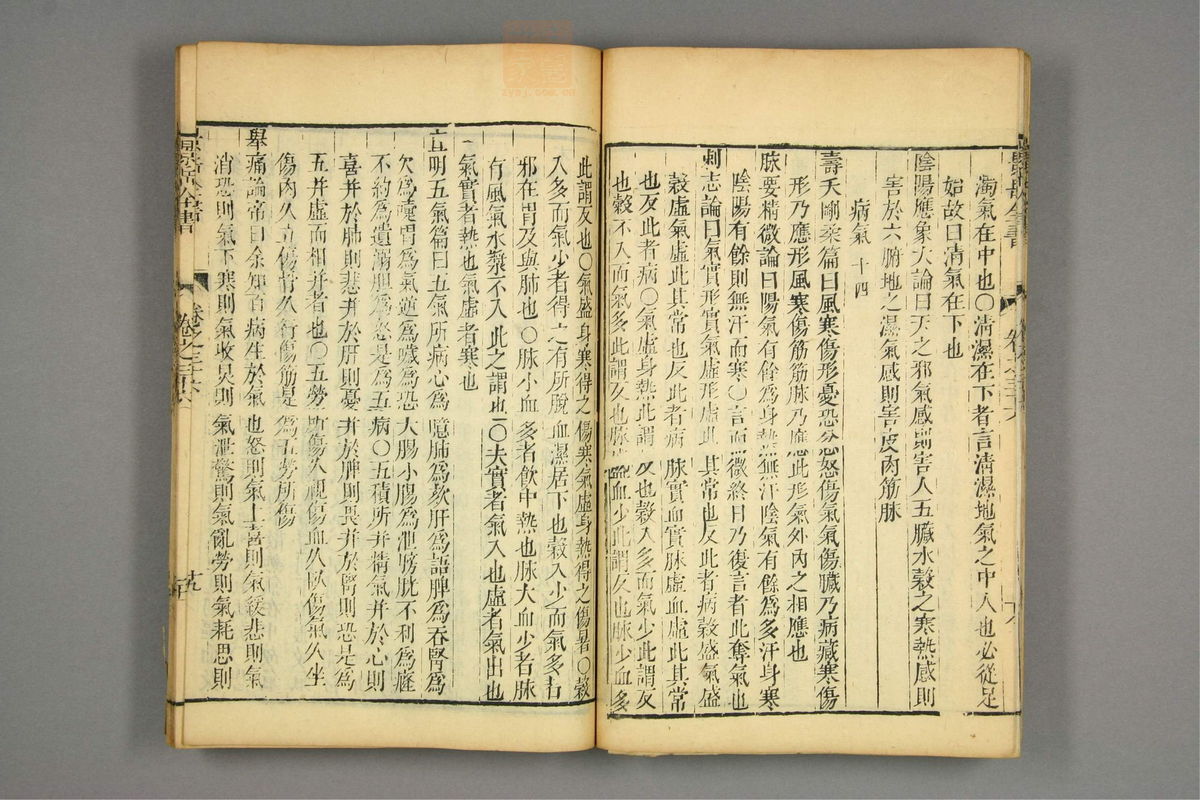 濁氣在中也○清濕在下者言清濕地氣之中人也必從足
始故曰清氣在下也
陰陽應象大論曰天之邪氣感則害人五臟水穀之寒熱感則
害於六腑地之濕氣感則害皮肉筋脉
病氣 十四
壽夭剛柔篇曰風寒傷形憂恐忿怒傷氣氣傷臟乃病藏寒傷
形乃應形風寒傷筋筋脉乃應此形氣外內之相應也
脉要精微論曰陽氣有餘爲身熱無汗陰氣有餘爲多汗身寒
陰陽有餘則無汗而寒○言而微終日乃復言者此奪氣也
刺志論曰氣實形實氣虛形虛此其常也反此者病穀盛氣盛
穀虛氣虛此其常也反此者病脉實血實脉虛血虛此其常
也反此者病○氣虛身熱此謂反也穀入多而氣少此謂反
也穀不入而氣多此謂反也脉盛血少此謂反也脉少血多
此謂反也○氣盛身寒得之傷寒氣虛身熱得之傷暑○穀
入多而氣少者得之有所脫血濕居下也穀入少而氣多者
邪在胃及與肺也○脉小血多者飲中熱也脉大血少者脉
有風氣水漿不入此之謂也○夫實者氣入也虛者氣出也
氣實者熱也氣虛者寒也
宣明五氣篇曰五氣所病心爲噫肺爲欬肝爲語脾爲吞腎爲
欠爲嚏胃爲氣逆爲噦爲恐大腸小腸爲泄膀胱不利爲癃
不約爲遺溺膽爲怒是爲五病○五積所并精氣并於心則
喜并於肺則悲并於肝則憂并於脾則畏并於腎則恐是爲
五并虛而相并者也○五勞所傷久視傷血久臥傷氣久坐
傷肉久立傷骨久行傷筋是爲五勞所傷
舉痛論帝曰余知百病生於氣也怒則氣上喜則氣緩悲則氣
消恐則氣下寒則氣收炅則氣泄驚則氣亂勞則氣耗思則
景岳全書
卷之三十六
十九